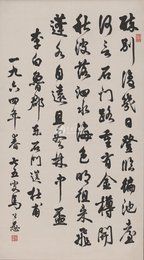 醉別復幾日登臨徧池臺
何言石門路重有金樽開
秋波落泗水海色明徂來飛
蓬各自遠且盡林中盃
李白魯郡東石門送杜甫
一九六四年春 七五叟馬公愚